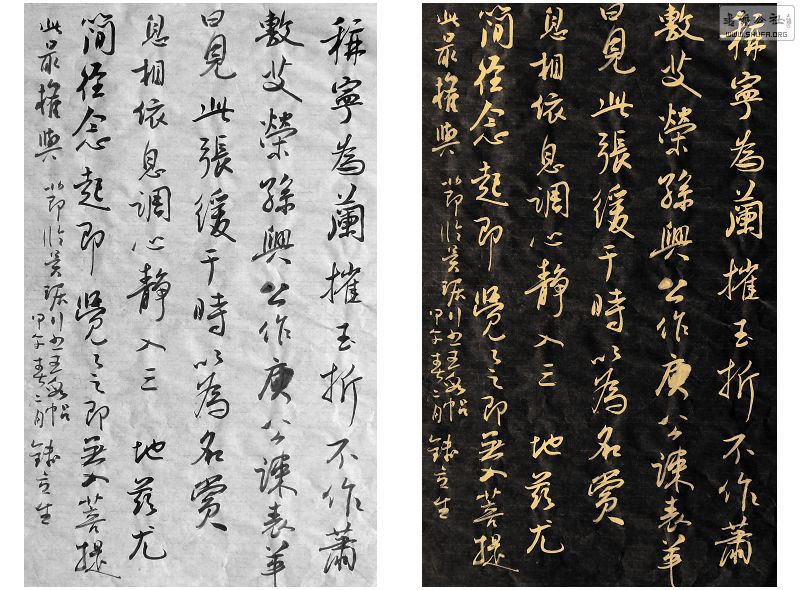 稱寧為蘭摧玉折不作蕭
敷艾榮孫興公作庾公誄袁羊
曰見此張緩于時以為名賞
息相依息調心靜入三地茲尤
簡徑念起即覺々之即無入菩提
此最權輿
節臨吳琚行書
甲午春二月
稱寧為蘭摧玉折不作蕭
敷艾榮孫興公作庾公誄袁羊
曰見此張緩于時以為名賞
息相依息調心靜入三地茲尤
簡徑念起即覺々之即無入菩提
此最權輿
節臨吳琚行書
甲午春二月
WWW.SHUFA.ORG